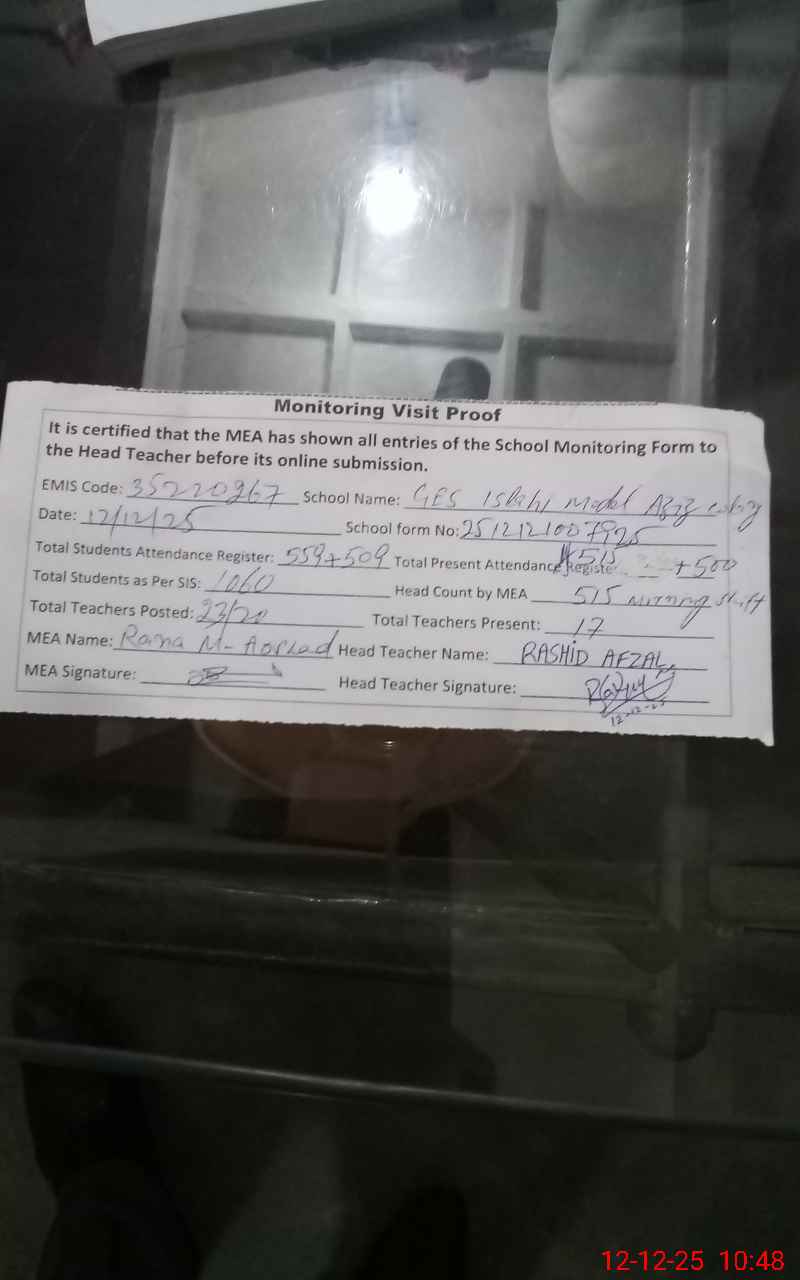 Monitoring Visit Proof
It is certified that the MEA has shown all entries of the School Monitoring Form to
the Head Teacher before its online submission.
EMIS Code: 35220967 School Name: GES Islahi Model Aziz colony
Date: 12/12/25 School form No: 2512121007925
Total Students Attendance Register: 559+509 Total Present Attendance Register 515 +500
Total Students as Per SIS: 1060 Head Count by MEA 515 morning shift
Total Teachers Posted: 23/20 Total Teachers Present: 17
MEA Name: Rana M- Head Teacher Name: RASHID AFZAL
MEA Signature: Head Teacher Signature:
12-12-25
12-12-25 10:48